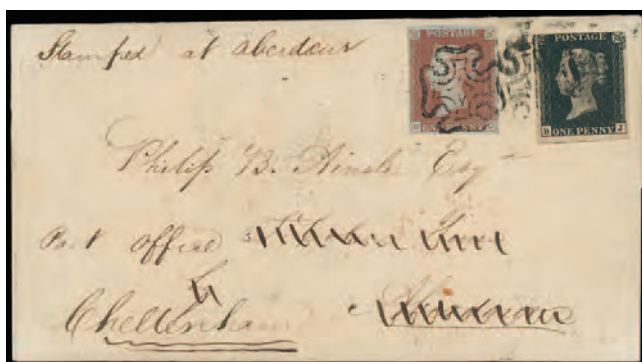 Stamped at Aberdeen
POSTAGE
ONE PENNY
POSTAGE
B ONE PENNY J
Philip B. Ainslie Esqr
Post Office
Cheltenham